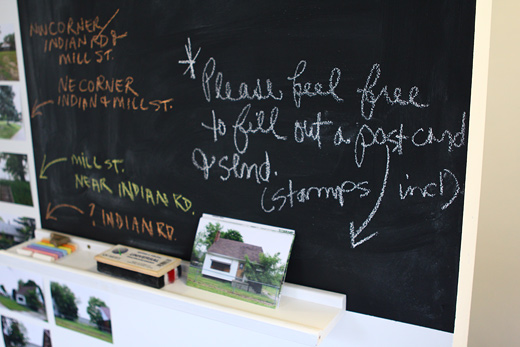 NW CORNER
INDIAN RD &
MILL ST.
NE CORNER
INDIAN & MILL ST.
MILL ST.
NEAR INDIAN RD.
? INDIAN RD.
* Please feel free
to fill out a postcard
& send.
(stamps incl)